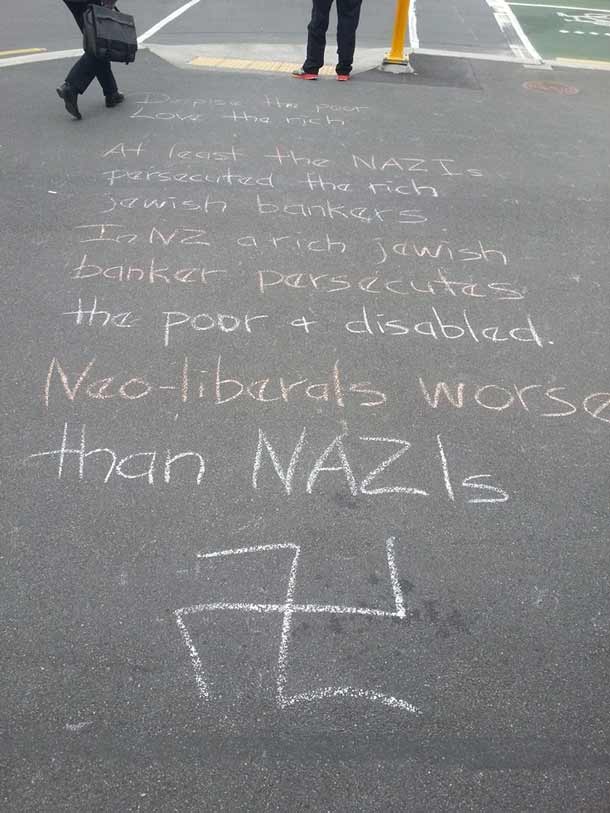 Despise the poor
Love the rich
At least the NAZIs
persecuted the rich
jewish bankers
In NZ a rich jewish
banker persecutes
the poor & disabled.
Neo-liberals worse
than NAZIs